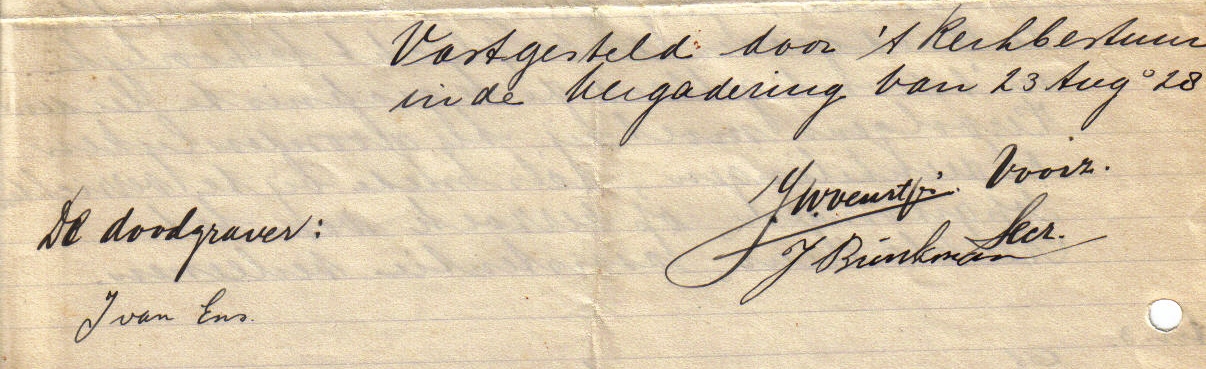 Vastgesteld door 't Kerkbestuur
in de vergadering van 23 Augo 28
Voorz.
De doodgraver:
Secr.
J Brinkman
J van Ens.